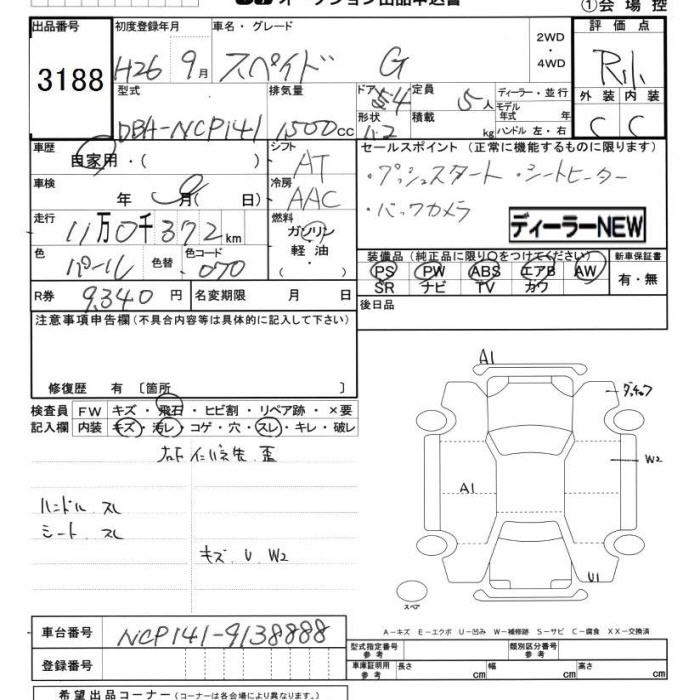 ①会場控
出品番号 初度登録年月 車名・グレード 2WD ・ 4WD 評価点
3188 H26 9月 スペイド G R
型式 排気量 ドア 形状 定員 積載 ディーラー・並行 モデル年式 年 外装 内装
DBA-NCP141 1500cc 5人 kg ハンドル 左・右 C C
車歴 自家用・( ) シフト AT セールスポイント(正常に機能するものに限ります)
・プッシュスタート ・シートヒーター
車検 年 月( 日) 冷房 AAC ・バックカメラ
ディーラーNEW
走行 11万0千372km 燃料 ガソリン ・ 軽油 ・( )
色 パール 色替 色コード 070
装備品(純正品に限り○をつけてください) 新車保証書
PS PW ABS エアB AW 有・無
SR ナビ TV カワ
R券 9,340円 名変期限 月 日 後日品
注意事項申告欄(不具合内容等は具体的に記入して下さい)
修復歴 有〔箇所 〕
検査員 FW キズ・飛石・ヒビ割・リペア跡・×要
記入欄 内装 キズ・汚レ・コゲ・穴・スレ・キレ・破レ
ハンドル スレ
シート スレ
キズ U W2
A1
W2
A1
U1
スペア
A-キズ E-エクボ U-凹み W-補修跡 S-サビ C-腐食 XX-交換済
車台番号 NCP141-9138888
登録番号
型式指定番号 参考 類別区分番号 参考
車庫証明用 参考 長さ cm 幅 cm 高さ cm
希望出品コーナー(コーナーは各会場により異なります。)